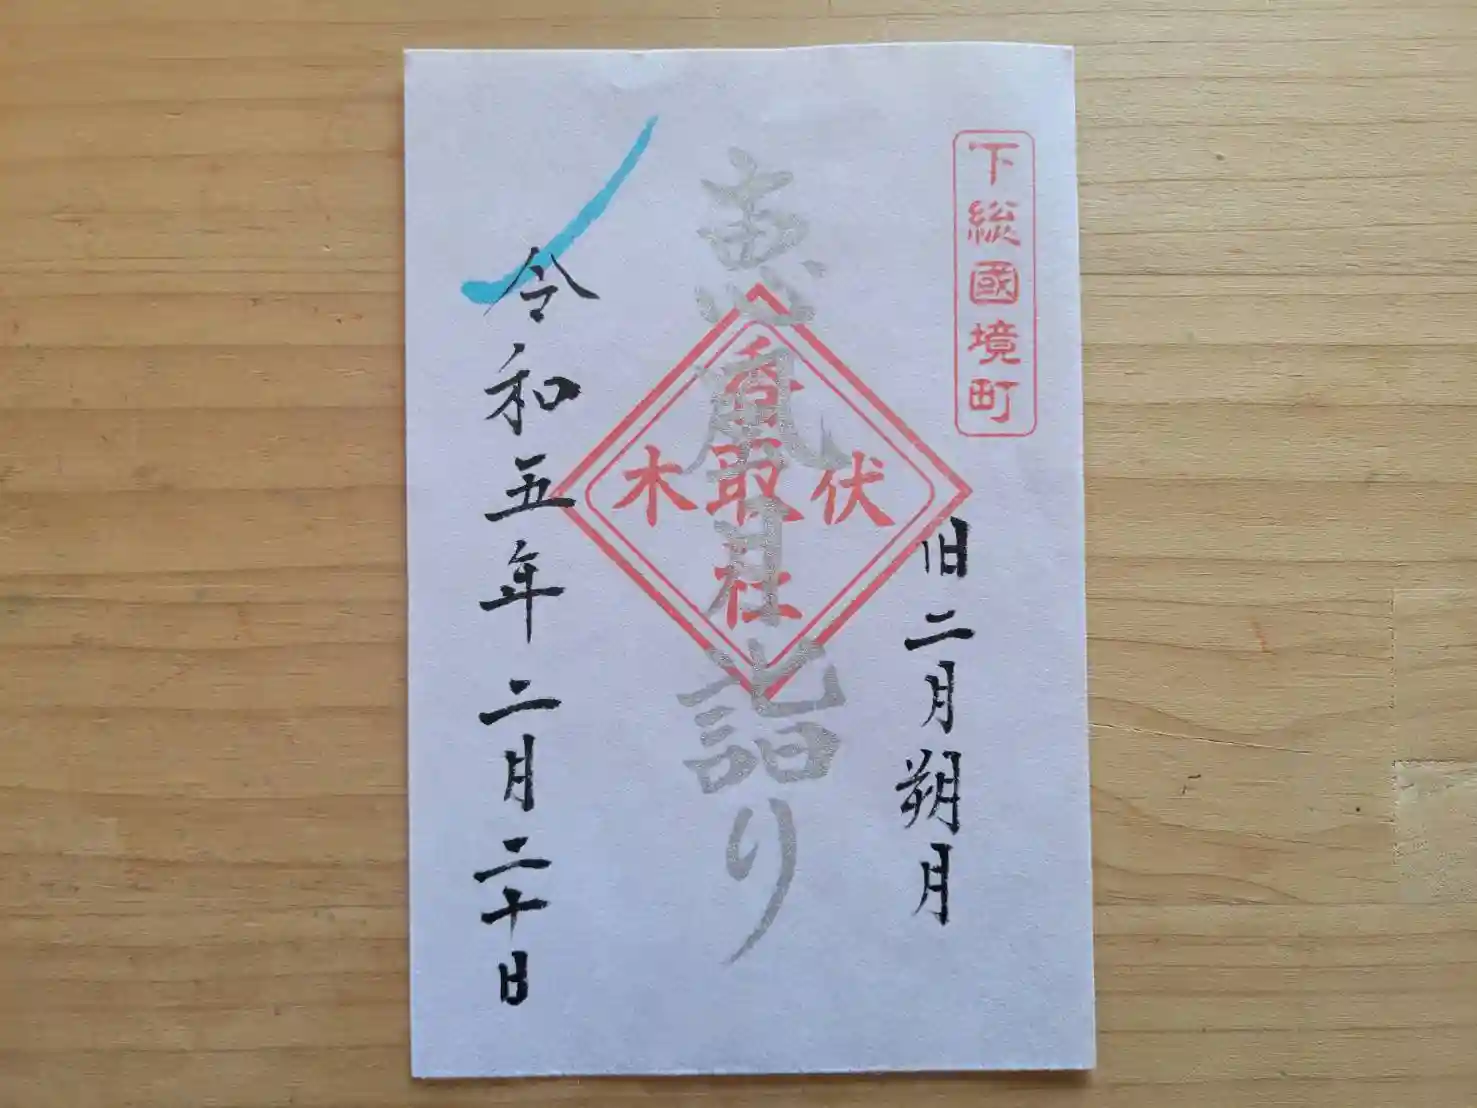 下総國境町
旧二月朔月
恵風月詣り
伏木
香取社
令和五年二月二十日